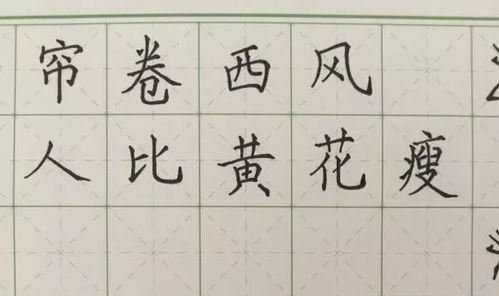 帘卷西风
人比黄花瘦